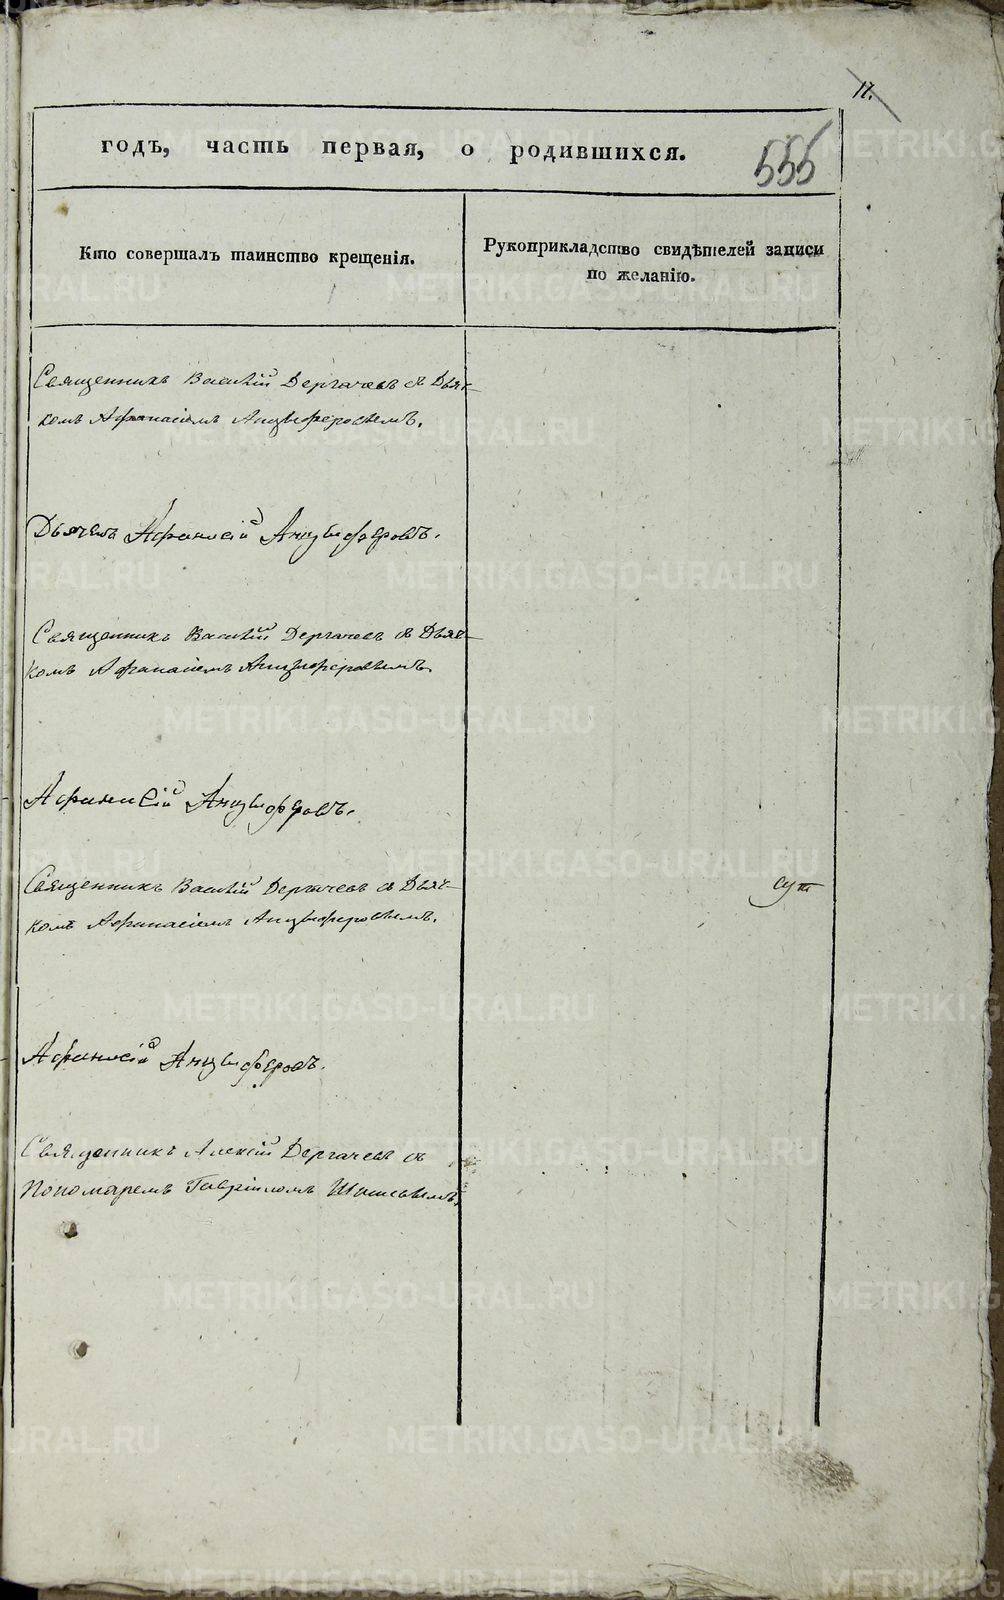 17.
годъ, часть первая, о родившихся.
555
Кто совершалъ таинство крещенія.
Рукоприкладство свидѣтелей записи
по желанію.
Священникъ Василій Дергачевъ съ Дьяч-
комъ Афанасіемъ Анцыферовымъ.
Дьячекъ Афанасій Анцыферовъ.
Священникъ Василій Дергачевъ съ Дьяч-
комъ Афанасіемъ Анцыферовымъ.
Афанасій Анцыферовъ.
Священникъ Василій Дергачевъ съ Дьяч-
комъ Афанасіемъ Анцыферовымъ.
Афанасій Анцыферовъ.
Священникъ Алексій Дергачевъ съ
Пономаремъ Гавріиломъ
METRIKI.GASO-URAL.RU